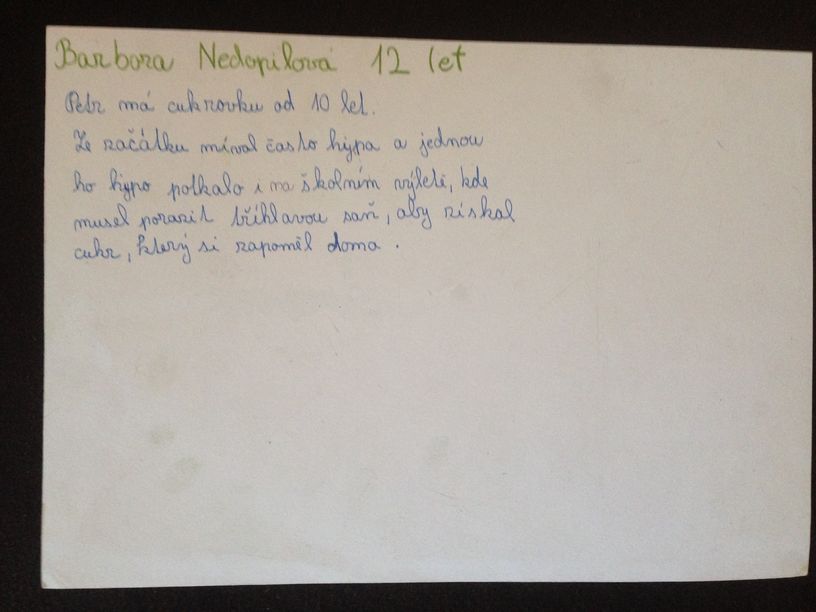 Barbora Nedopilová 12 let
Petr má cukrovku od 10 let.
Ze začátku míval často hypa a jednou
ho hypo potkalo i na školním výletě, kde
musel porazit tříhlavou saň, aby získal
cukr, který si zapoměl doma.